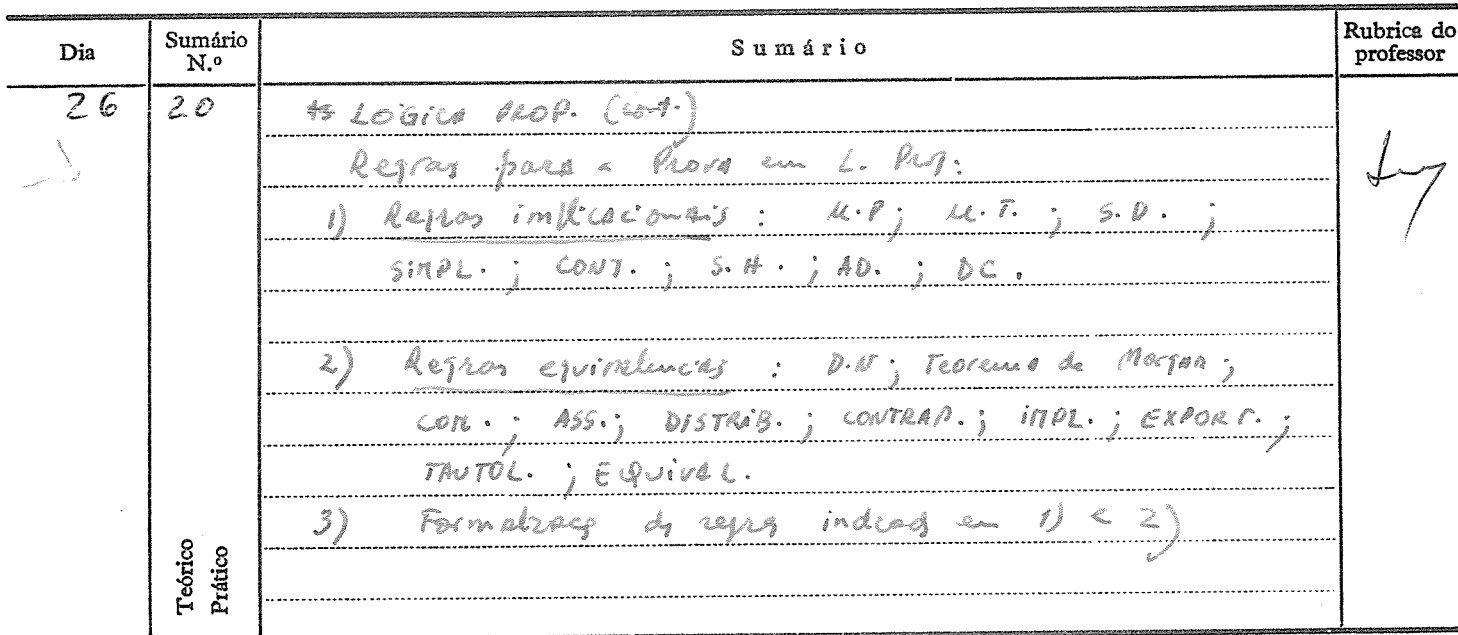 Dia
Sumário N.º
Sumário
Rubrica do professor
26 20 LÓGICA PROP. (cont.)
Regras para a Prova em L. Prop:
1) Regras implicacionais : M.P; M.T. ; S.D. ;
SIMPL. ; CONJ. ; S.H. ; AD. ; DC.
2) Regras equivalenciais : D.N; Teorema de Morgan;
COM. ; ASS.; DISTRIB. ; CONTRAP. ; IMPL. ; EXPORT. ;
TAUTOL. ; EQUIVAL.
3) Formalização das regras indicadas em 1) e 2)
Teórico
Prático